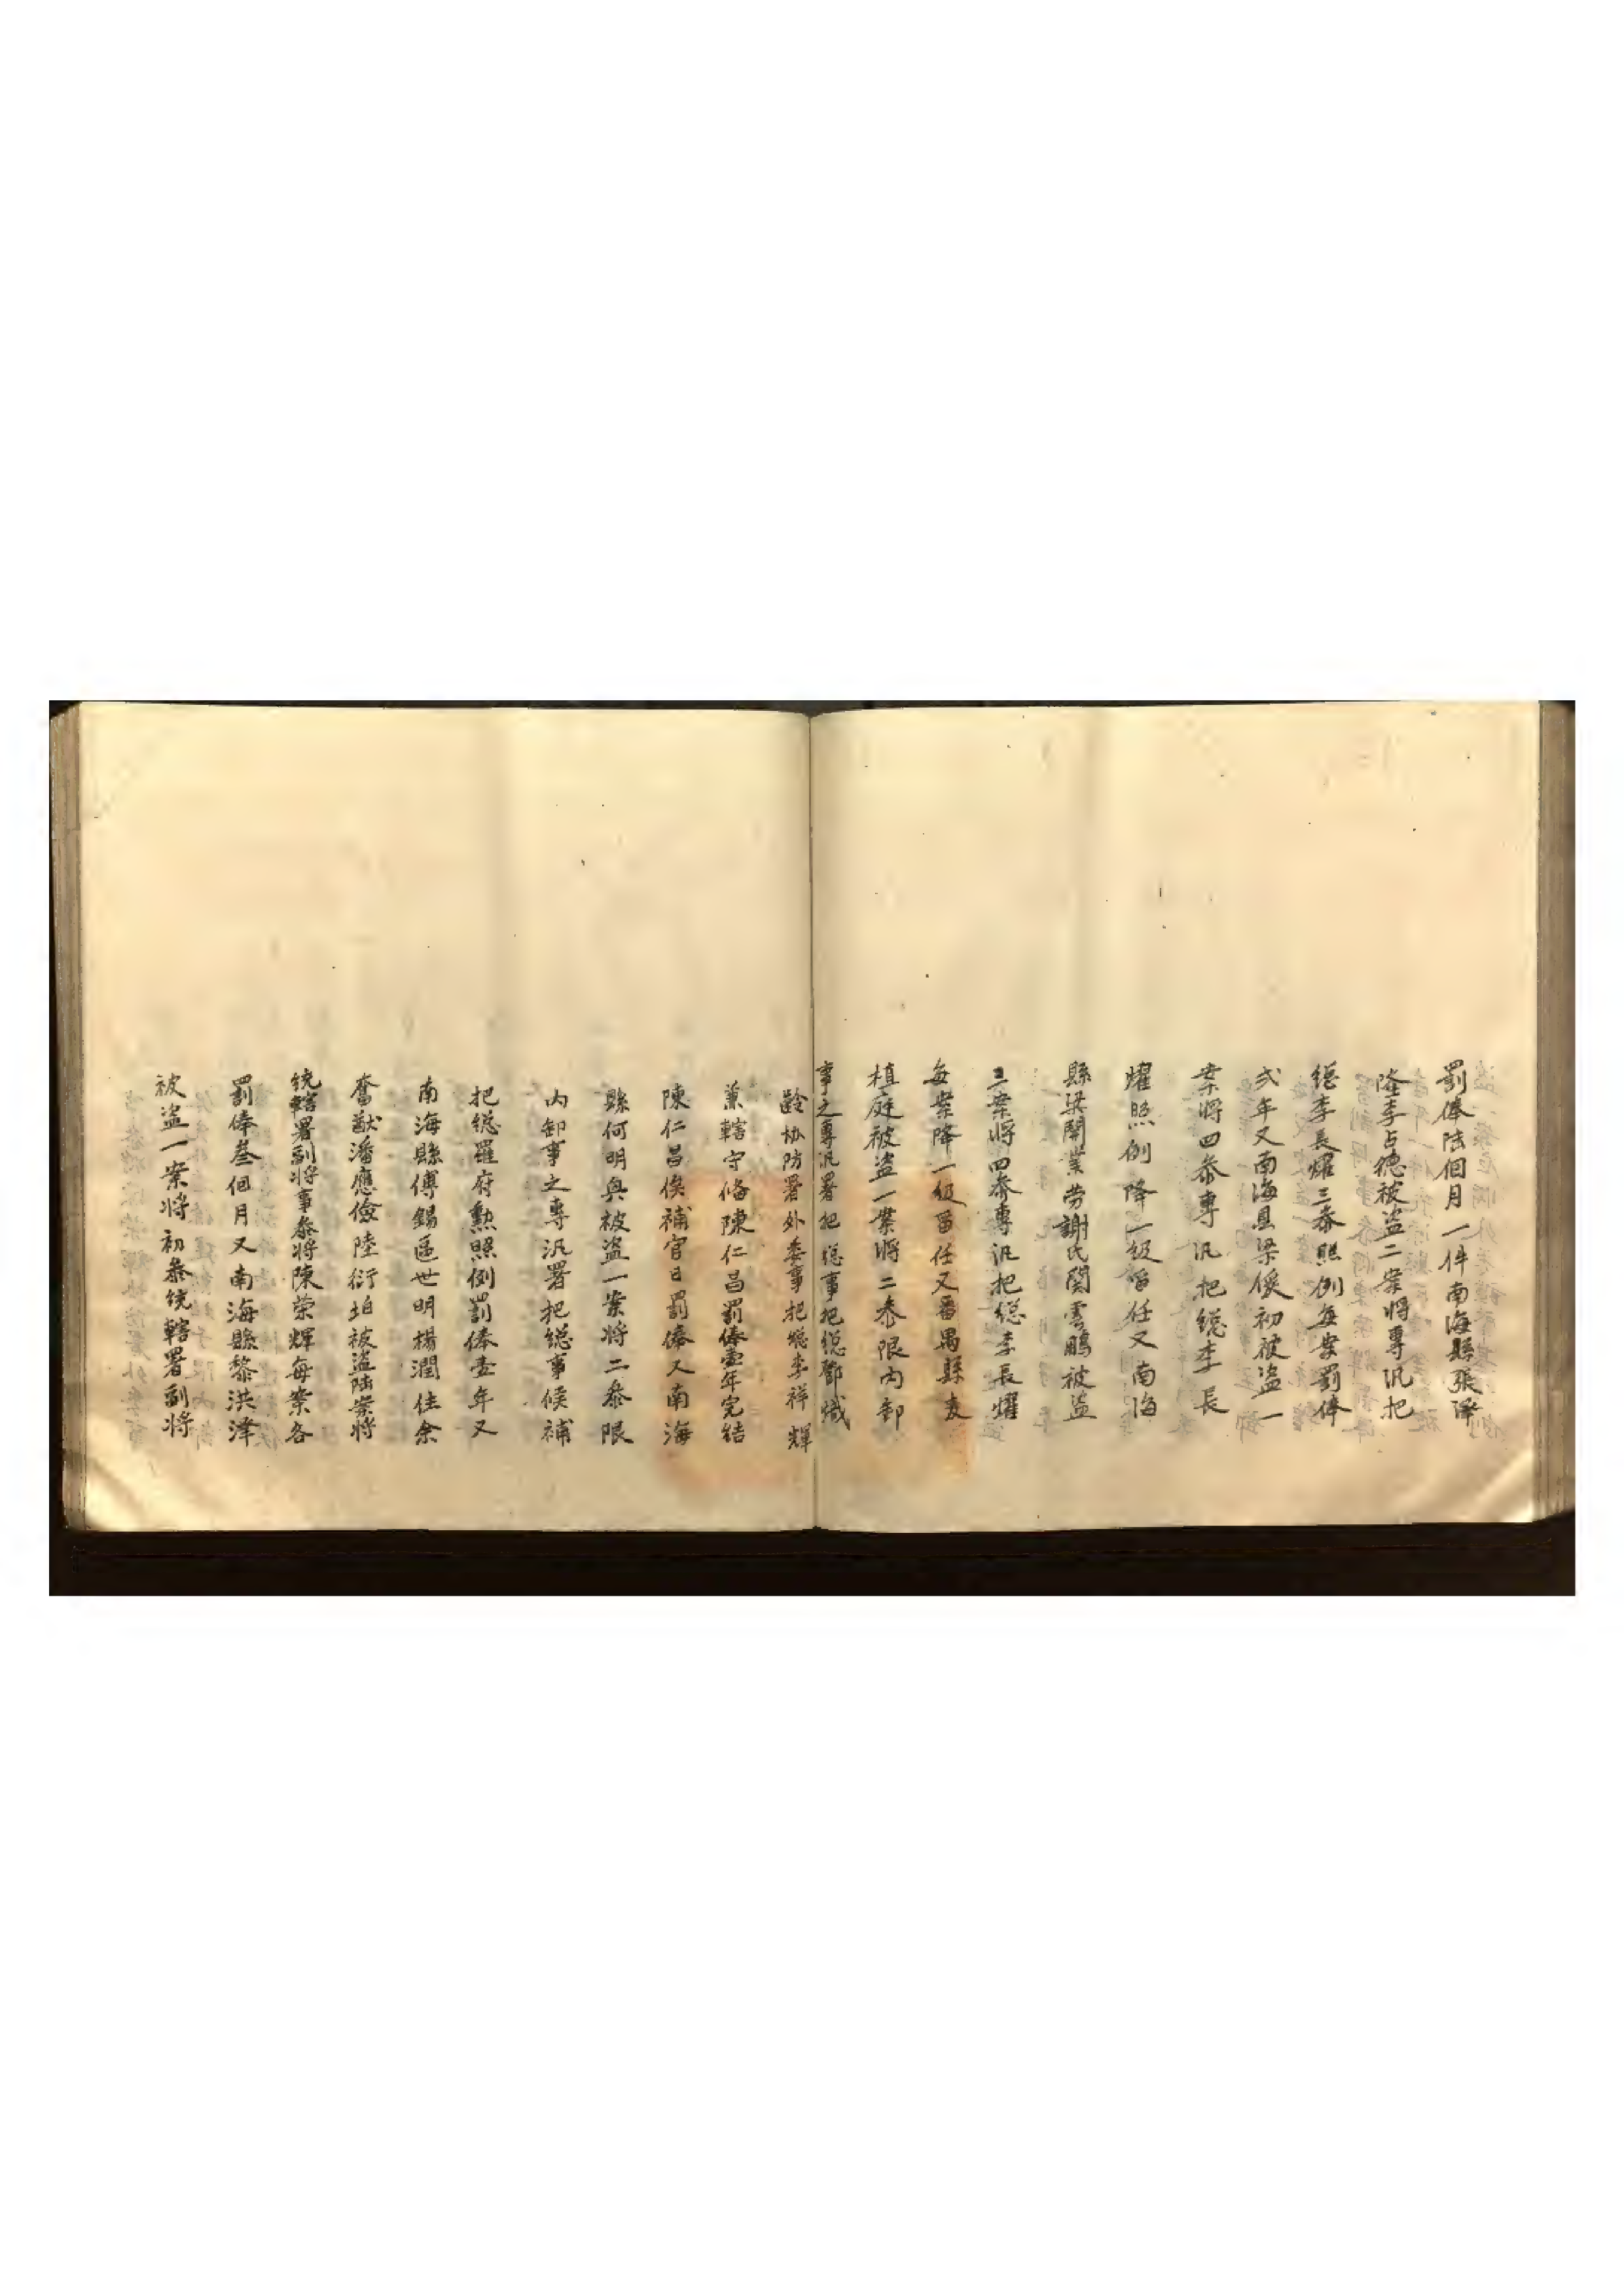 罰俸陸個月一件南海縣張澤
隆李占德被盜二案將專汛把
總李長燿三叅照例每案罰俸
弍年又南海县梁儍初被盜一
案將四叅專汛把總李長
燿照例降一級留任又南海
縣梁開業劳謝氏関雲鵬被盜
三案將四叅專汛把總李長燿
每案降一級畱任又番禺縣麦
植庭被盜一案將二叅限内卸
事之專汛署把總事把總鄧熾
齡协防署外委事把總李祥輝
兼轄守俻陳仁昌罰俸壹年完結
陳仁昌俟補官日罰俸又南海
縣何明興被盜一案將二叅限
内卸事之專汛署把總事候補
把總羅府勲照例罰俸壹年又
南海縣傅錫區世明揚潤佳余
奮猷潘應儉陸衍珀被盜陆案將
统轄署副將事叅將陳荣輝每案各
罰俸叁個月又南海縣黎洪澤
被盜一案將初叅统轄署副將